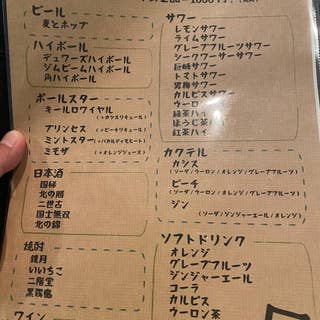 ビール
麦とホップ
ハイボール
デュワーズハイボール
ジムビームハイボール
角ハイボール
ポールスター
キールロワイヤル
(+カシスリキュール)
プリンセス (+ピーチリキュール)
ミントスター (+バカルディモヒート)
ミモザ (+オレンジジュース)
日本酒
国稀
北の勝
二世古
国士無双
北の錦
焼酎
鏡月
いいちこ
二階堂
黒霧島
ワイン
サワー
レモンサワー
ライムサワー
グレープフルーツサワー
巨峰サワー
トマトサワー
男梅サワー
カルピスサワー
ウーロンハイ
緑茶ハイ
ほうじ茶ハイ
紅茶ハイ
カクテル
カシス
(ソーダ/ウーロン/オレンジ/グレープフルーツ)
ピーチ
(ソーダ/ウーロン/オレンジ/グレープフルーツ)
ジン
(ソーダ/ジンジャーエール/オレンジ)
ソフトドリンク
オレンジ
グレープフルーツ
ジンジャーエール
コーラ
カルピス
ウーロン茶